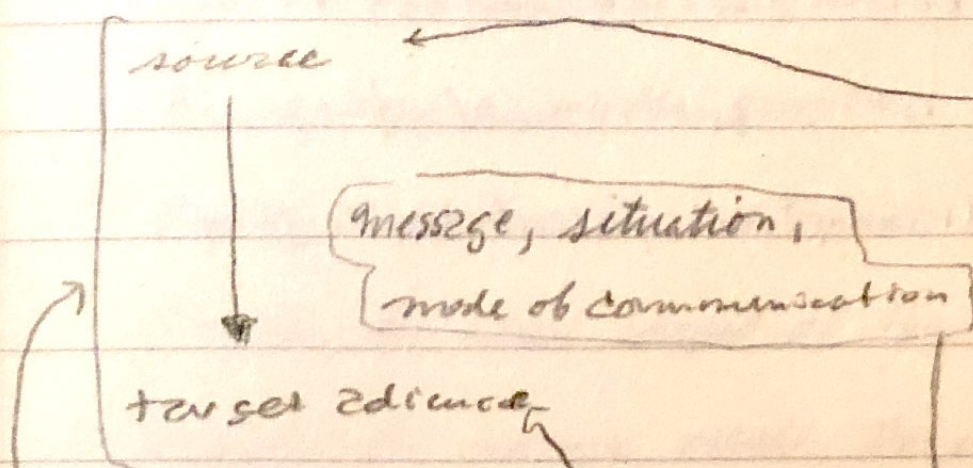 source
message, situation,
mode of communication
target adience